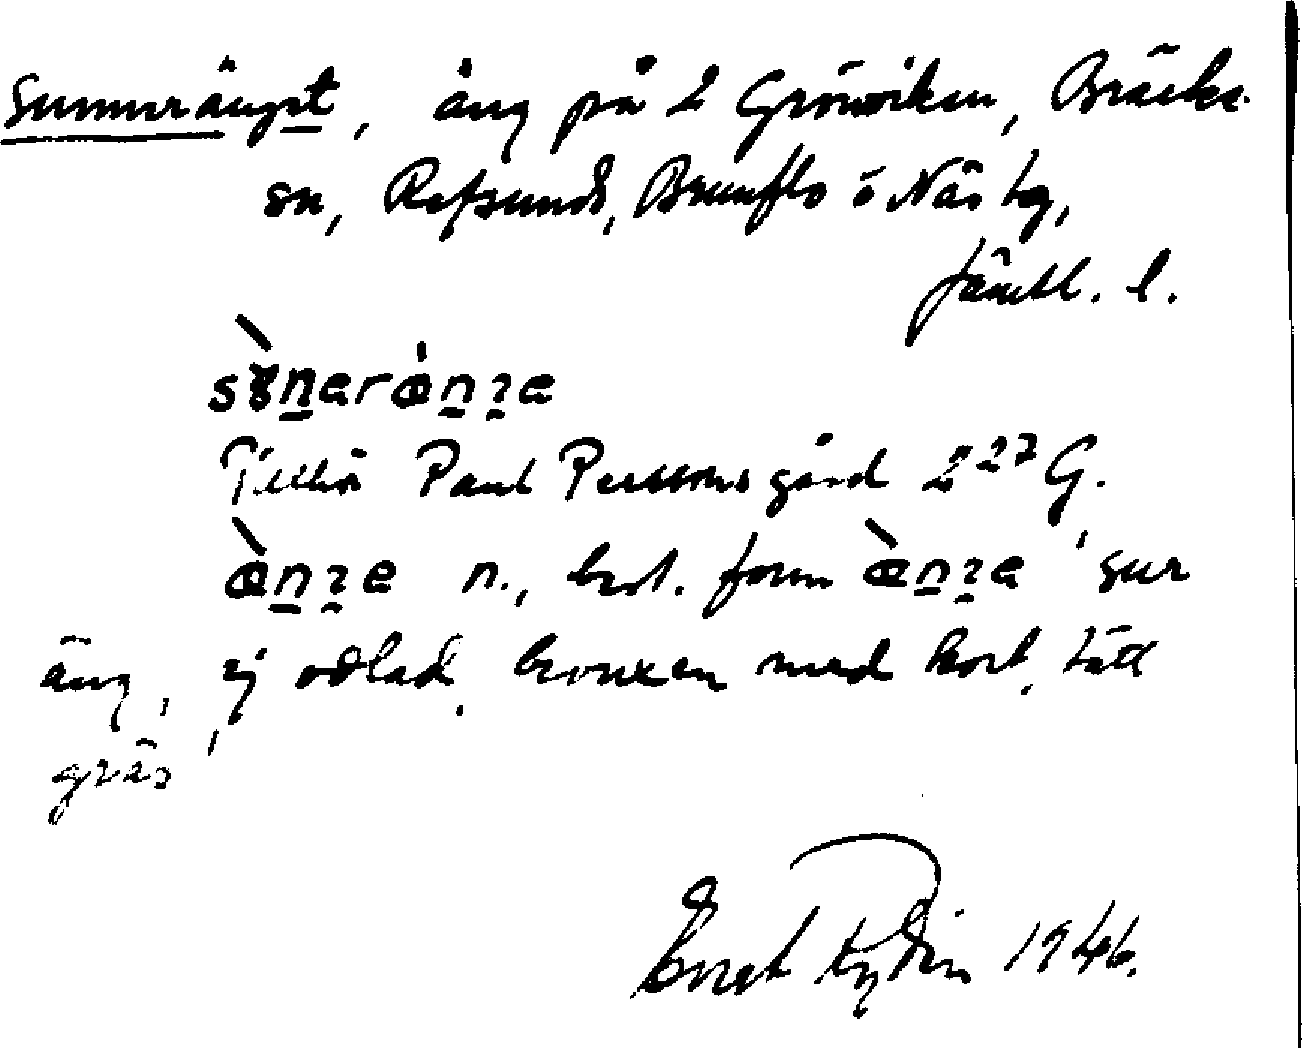 Sunneränget, äng på 2 Grönviken, Bräcke
sn, Refsunds, Brunflo o Näs tg,
Jämtl. l.
sɤ̀nerǽnʒe
Tillhör Paul Perssons gård 2²⁷ G.
æ̀nʒe n., best. form æ̀nʒa 'sur
äng, ej odlad, bevuxen med kort, tätt
gräs'
Ernst Rydin 1946.